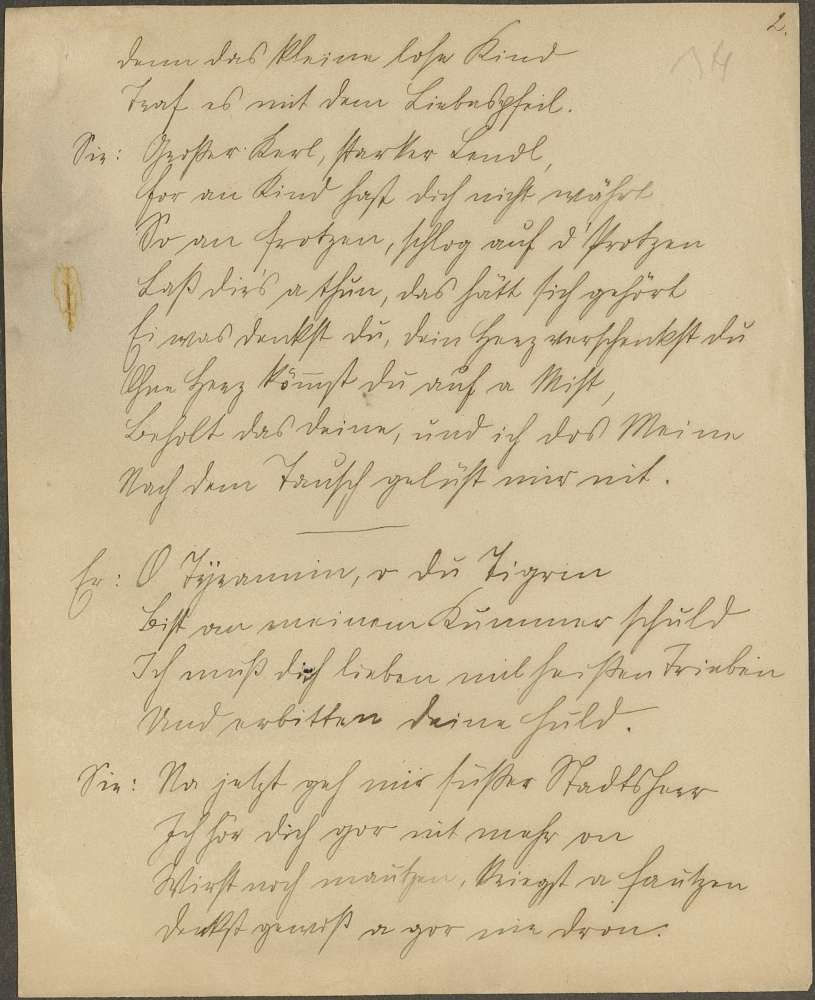 2.
34
denn das kleine lose Kind
Traf es mit dem Liebespfeil.
Sie: Großer Kerl, starker Lendl,
for an Kind hast dich nicht währt
So an frotzen, schlog auf d'Protzen
Laß dir's a thun, das hätt sich gehört
Ei was denkst du, dein Herz verschenkst du
Ohne Herz kömmst du auf a Mist,
Beholt das deine, und ich dos Meine
Nach dem Tausch gelüst mir nit.
Er: O Tÿrannin, o du Tigrin
Bist an meinem Kummer schuld
Ich muß dich lieben mit heißen Trieben
Und erbitten deine Huld.
Sie: Na jetzt geh mir süßer Stadtsherr
Ich hör dich gor nit mehr on
Wirst noch mautzen, kriegst a fautzen
Denkst gewiß a gor nie dron.